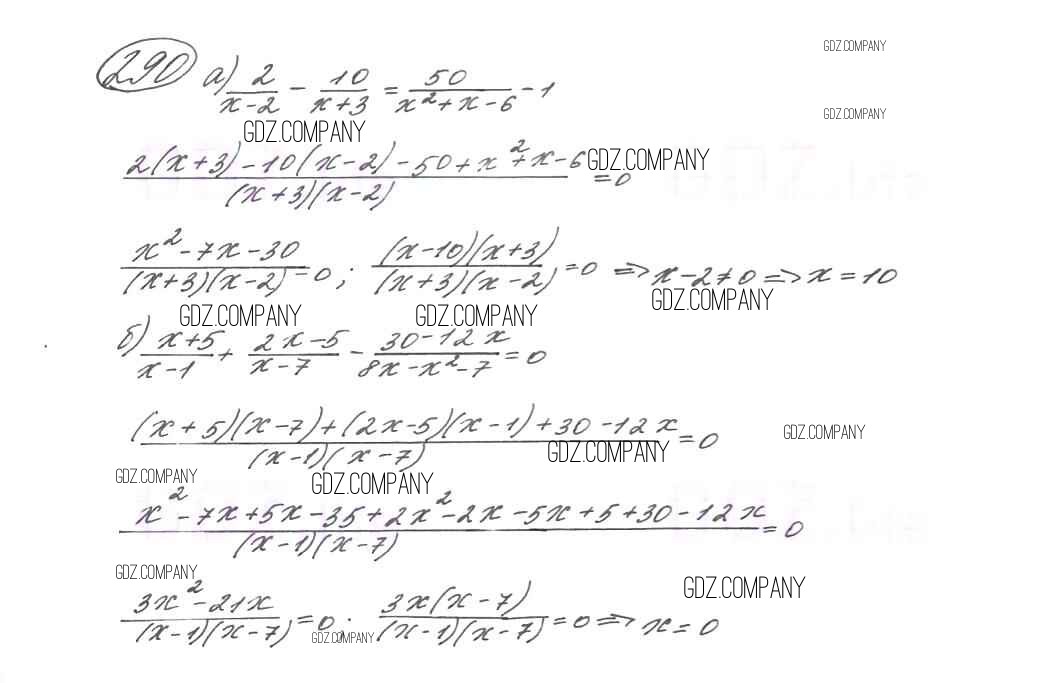 290 а) 2/(x-2) - 10/(x+3) = 50/(x²+x-6) - 1
GDZ.COMPANY
GDZ.COMPANY
GDZ.COMPANY
(2(x+3)-10(x-2)-50+x²+x-6)/((x+3)(x-2)) = 0
GDZ.COMPANY
(x²-7x-30)/((x+3)(x-2)) = 0; ((x-10)(x+3))/((x+3)(x-2)) = 0 => x-2≠0 => x=10
GDZ.COMPANY
GDZ.COMPANY GDZ.COMPANY
б) (x+5)/(x-1) + (2x-5)/(x-7) - (30-12x)/(8x-x²-7) = 0
((x+5)(x-7)+(2x-5)(x-1)+30-12x)/((x-1)(x-7)) = 0
GDZ.COMPANY
GDZ.COMPANY
GDZ.COMPANY GDZ.COMPANY
(x²-7x+5x-35+2x²-2x-5x+5+30-12x)/((x-1)(x-7)) = 0
GDZ.COMPANY GDZ.COMPANY
(3x²-21x)/((x-1)(x-7)) = 0; (3x(x-7))/((x-1)(x-7)) = 0 => x=0
GDZ.COMPANY